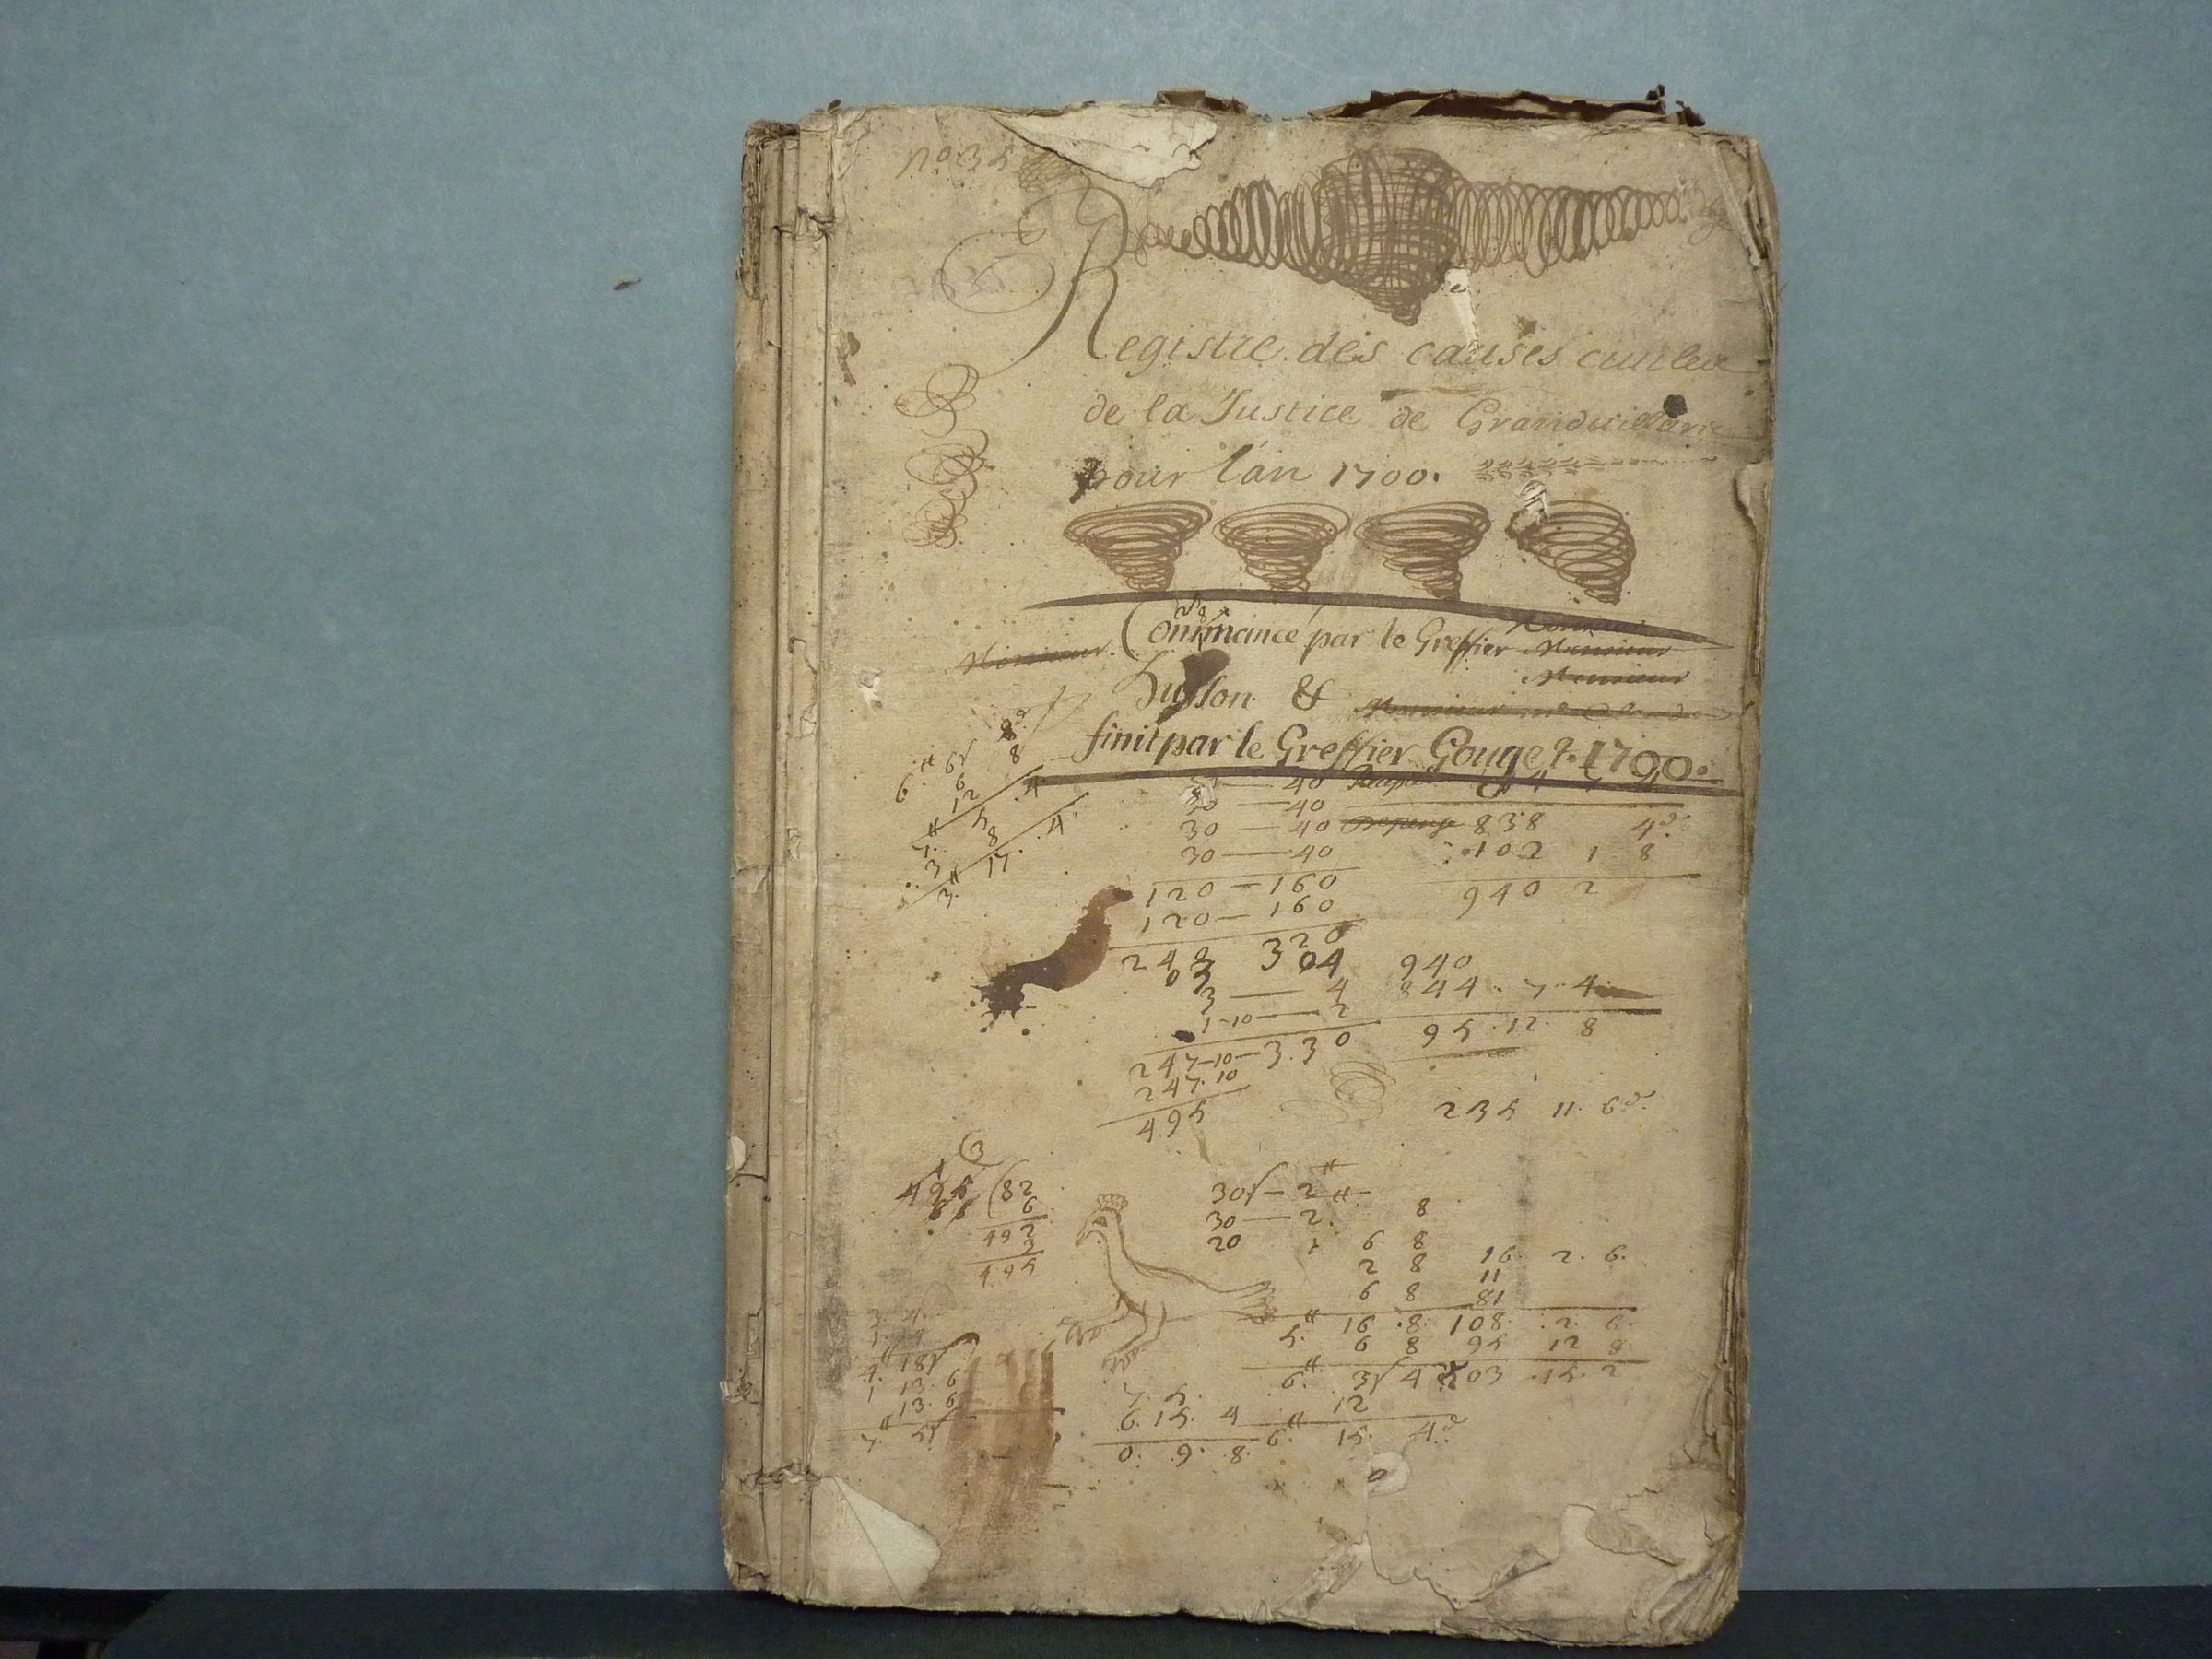 no 35
Registre des causes ciuilles
de la Justice de Granduillars
pour l'an 1700.
Monsieur Commancé par le Greffier Monsieur
Monsieur
Husson &
finit par le Greffier Gouget. 1700.
6 ₶ 6s 8d
6 8
12 .4
40
30 — 40
30 — 40 Depense 838 4d
30 — 40 102 1 8
120 — 160 940 2
120 — 160
240 320
304 940
3 — 4 844 . 7 . 4
1-10 — 2
95 . 12 . 8
247-10 — 330
247 . 10
495
235 11 6d
495 (82
6
492
3
495
30s — 2 ₶
30 — 2 . 8
20 1 6 8
2 8 16 2 . 6 .
6 8 11
81
5 . ₶ 16 . 8 108 . 2 . 6 .
6 8 95 12 8
6 . ₶ 3s 4 203 . 15 . 2
12
6 ₶ 15 . 4d
3 4
4 ₶ 18s
1 13 . 6
13 . 6
7 ₶ 5s
7 . 5 .
6 . 15 . 4
0 . 9 . 8 .